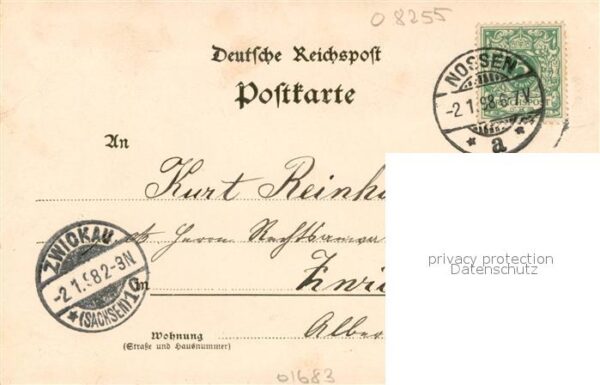 O 8255
Deutsche Reichspost
Postkarte
NOSSEN
-2 1.98.6-7V.
* a *
An
Kurt Reinh
Herrn Rechtsanwa
in Zwi
Albe
ZWICKAU
-2 1.98 2-3N
*(SACHSEN)1c
privacy protection
Datenschutz
Wohnung
(Straße und Hausnummer)
01683